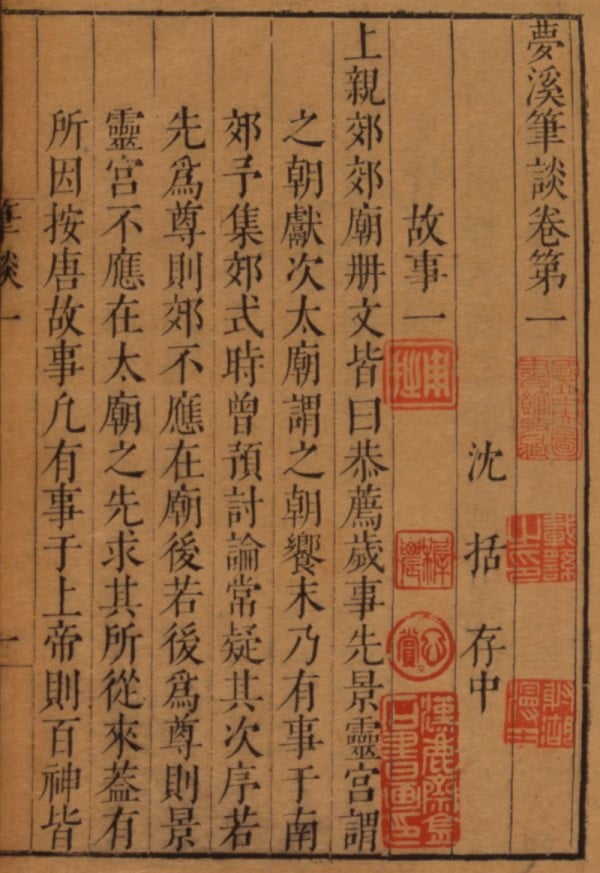 夢溪筆談卷第一
沈括存中
故事一
上親郊郊廟册文皆曰恭薦歲事先景靈宮謂
之朝獻次太廟謂之朝饗末乃有事于南
郊予集郊式時曾預討論常疑其次序若
先爲尊則郊不應在廟後若後爲尊則景
靈宮不應在太廟之先求其所從來蓋有
所因按唐故事凢有事于上帝則百神皆
筆談一
一